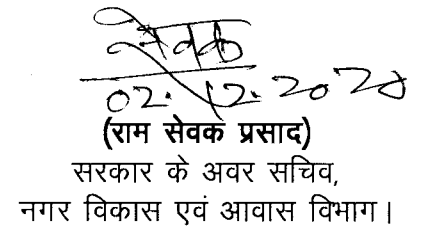 सेवक
02.12.2020
(राम सेवक प्रसाद)
सरकार के अवर सचिव,
नगर विकास एवं आवास विभाग।